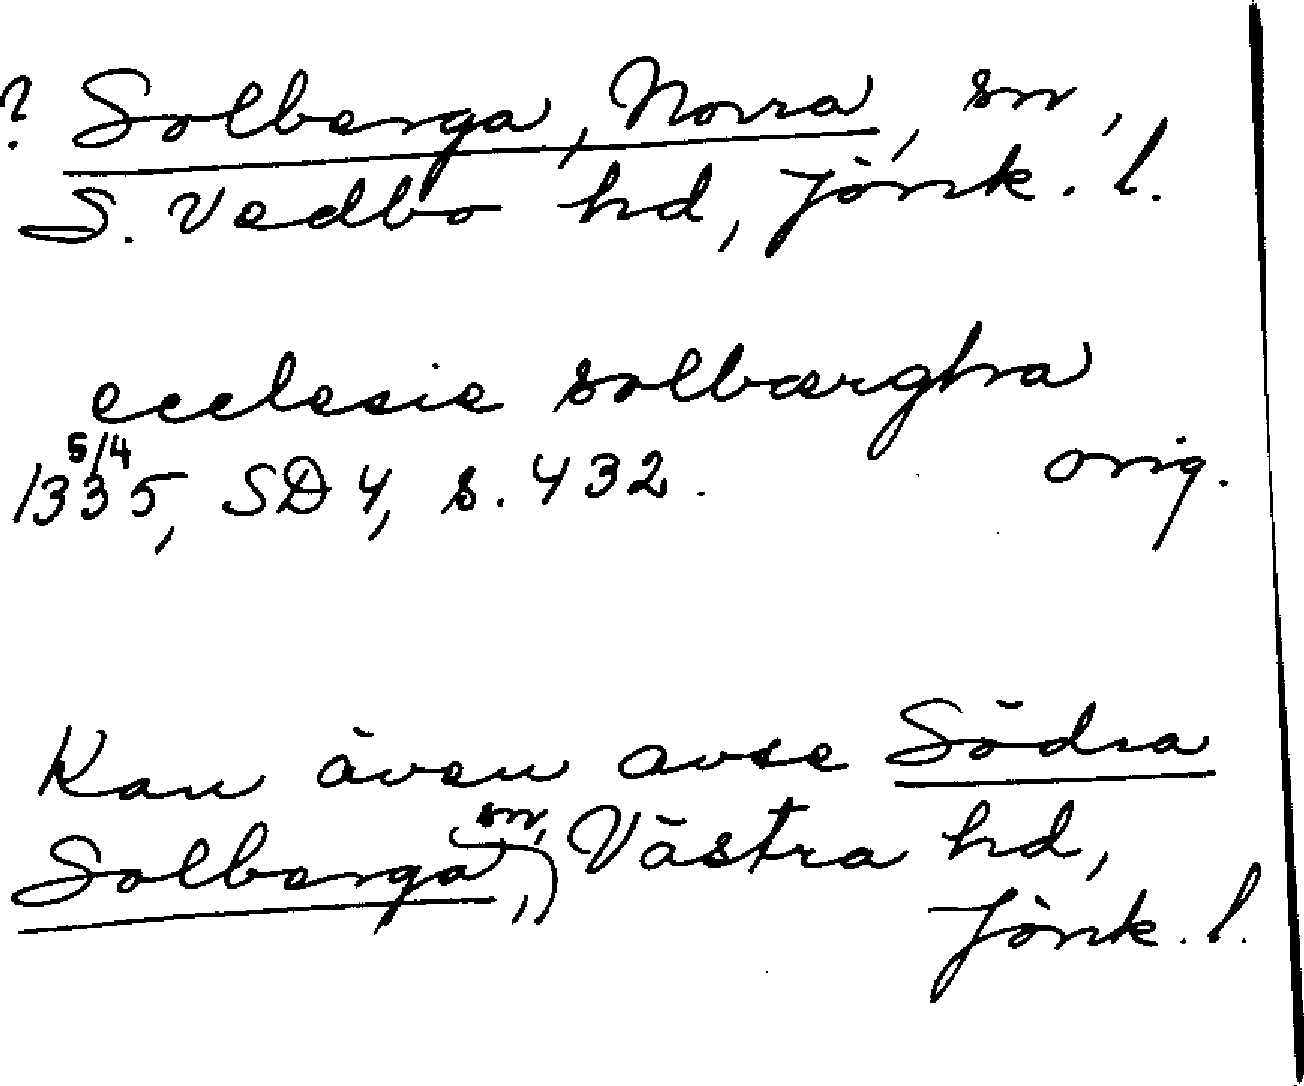 ? Solberga, Norra, sn,
S. Vedbo hd, Jönk. l.
ecclesie solbærgha
1335 5/4, SD 4, s. 432. orig.
Kan även avse Södra
Solberga, sn, Västra hd,
Jönk. l.